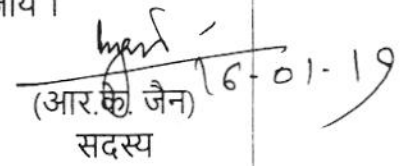 16-01-19
(आर.के. जैन)
सदस्य